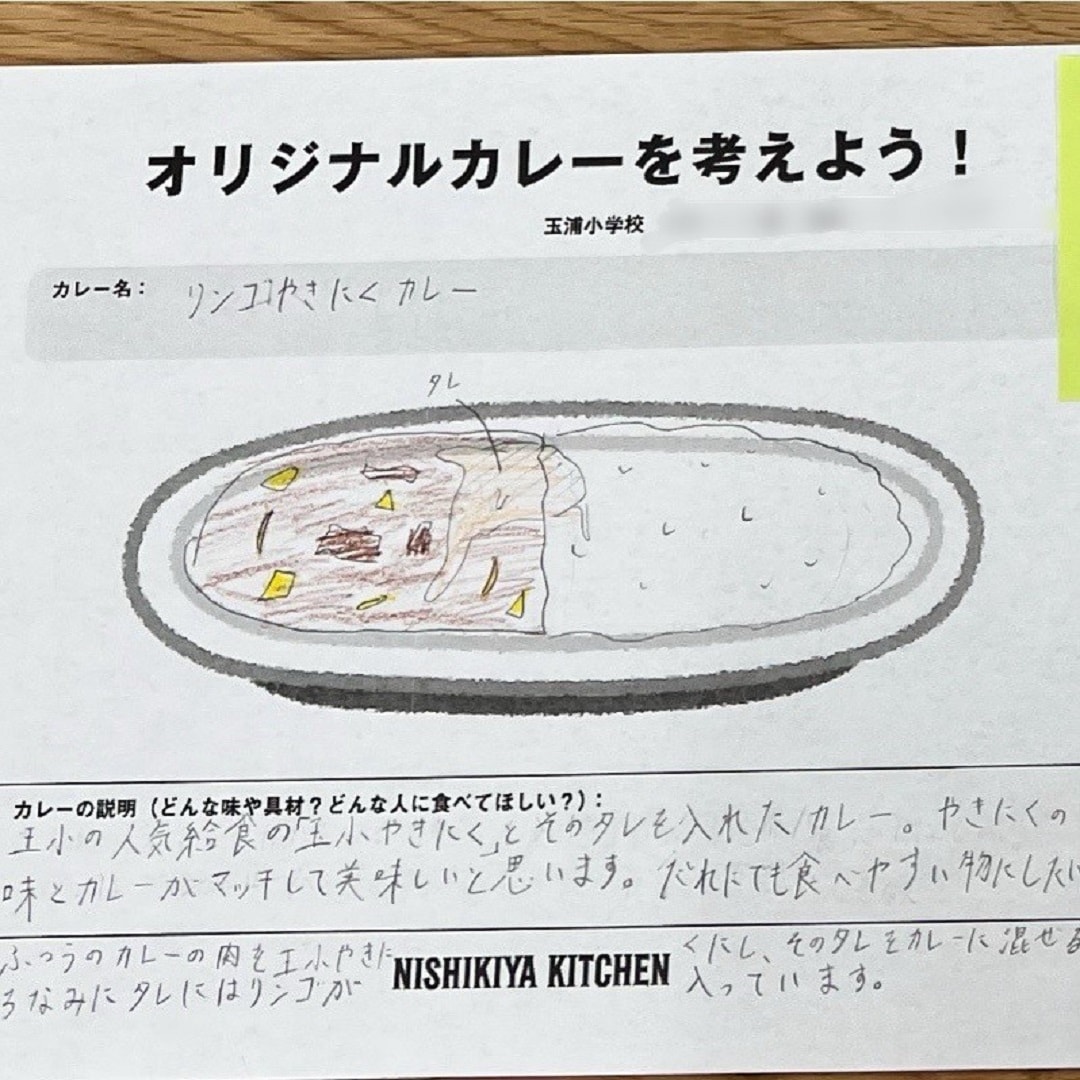 オリジナルカレーを考えよう！
玉浦小学校
カレー名： リンゴやきにくカレー
タレ
カレーの説明（どんな味や具材？どんな人に食べてほしい？）：
玉小の人気給食の「玉小やきにく」とそのタレを入れたカレー。やきにくの
味とカレーがマッチして美味しいと思います。だれにでも食べやすい物にしたい
ふつうのカレーの肉を玉小やきにくにし、そのタレをカレーに混ぜる
ちなみにタレにはリンゴが入っています。
NISHIKIYA KITCHEN